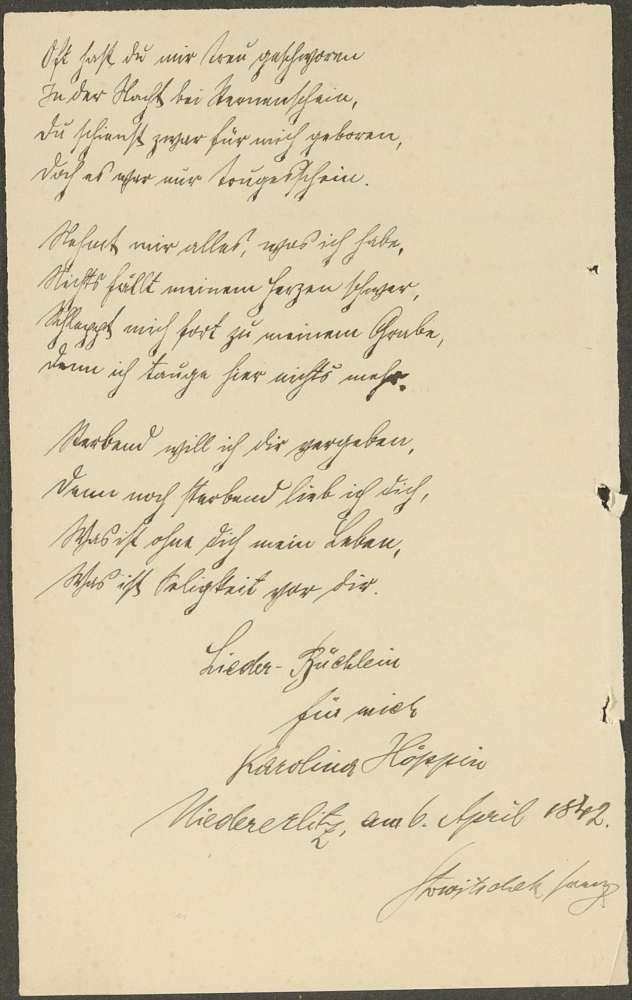 Oft hast du mir treu geschworen
In der Nacht bei Sternenschein,
Du schienst zwar für mich geboren,
Doch es war nur Trugesschein.
Nehmt mir alles, was ich habe,
Nichts fällt meinem Herzen schwer,
Schleppt mich fort zu meinem Grabe,
Denn ich tauge hier nichts mehr.
Sterbend will ich dir vergeben,
Denn noch sterbend lieb ich dich,
Was ist ohne dich mein Leben,
Was ist Seligkeit vor dir.
Lieder-Büchlein
für mich
Karolina Höppin
Niedererlitz, am 6. April 1842.